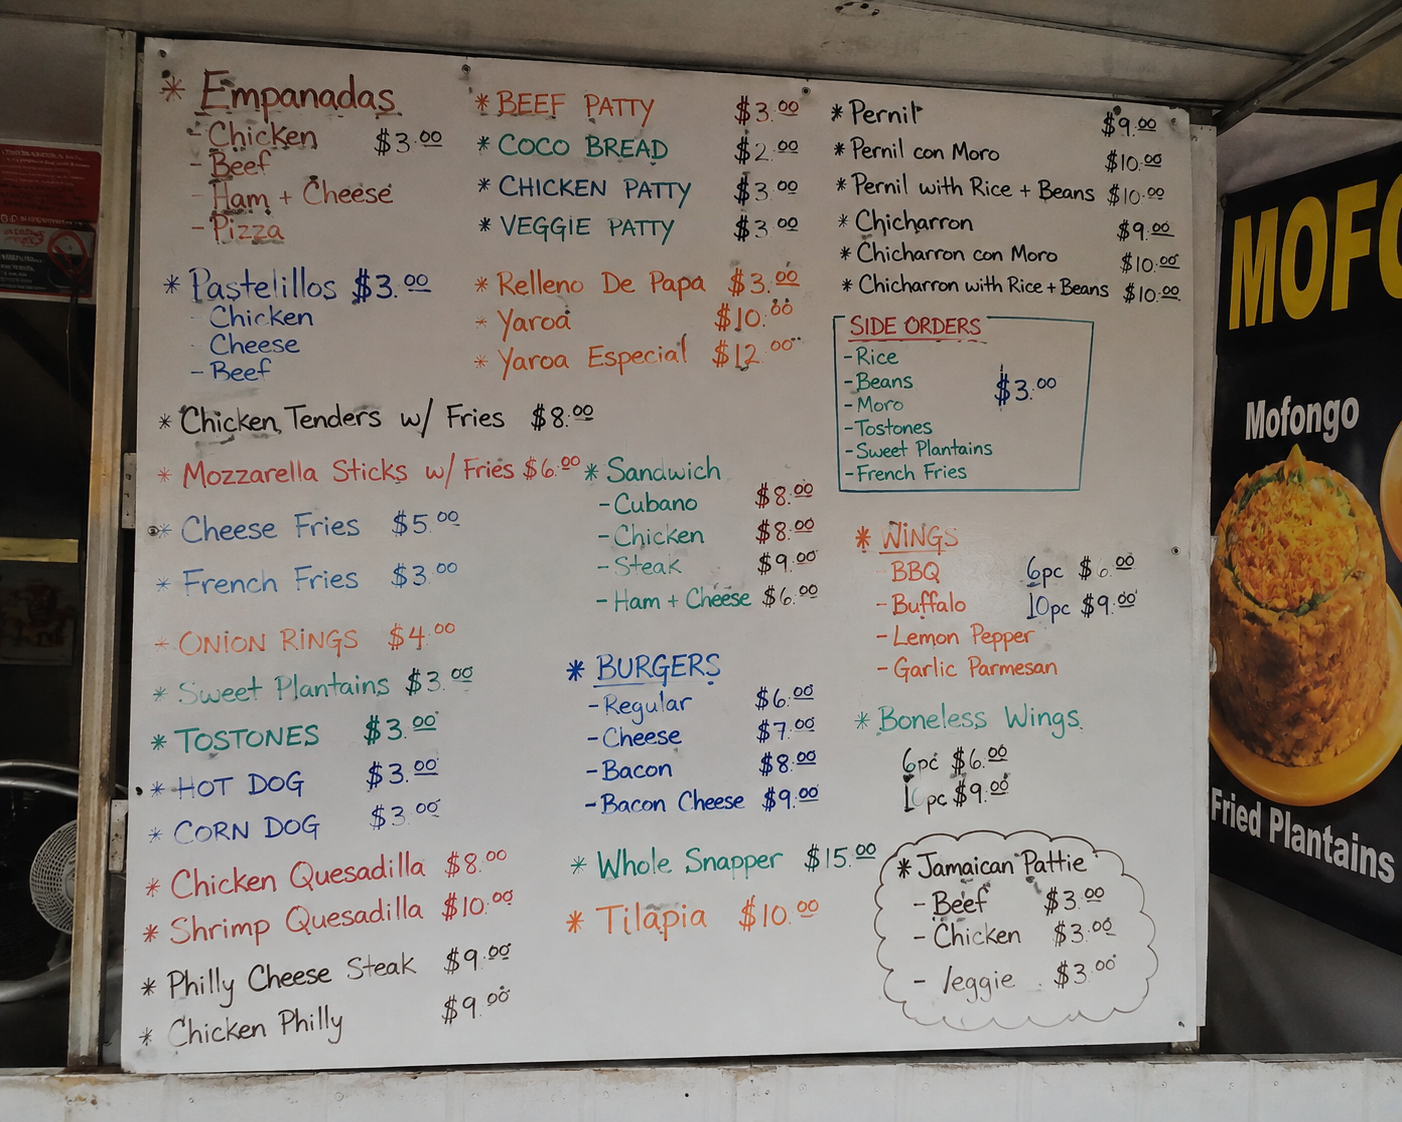 * Empanadas
- Chicken $3.00
- Beef
- Ham + Cheese
- Pizza
* Pastelillos $3.00
Chicken
Cheese
- Beef
* BEEF PATTY $3.00
* COCO BREAD $2.00
* CHICKEN PATTY $3.00
* VEGGIE PATTY $3.00
* Relleno De Papa $3.00
* Yaroa $10.00
* Yaroa Especial $12.00
* Pernil $9.00
* Pernil con Moro $10.00
* Pernil with Rice + Beans $10.00
* Chicharron $9.00
* Chicharron con Moro $10.00
* Chicharron with Rice + Beans $10.00
SIDE ORDERS
- Rice
- Beans $3.00
- Moro
- Tostones
- Sweet Plantains
- French Fries
* Chicken Tenders w/ Fries $8.00
* Mozzarella Sticks w/ Fries $6.00
* Cheese Fries $5.00
* French Fries $3.00
* ONION RINGS $4.00
* Sweet Plantains $3.00
* TOSTONES $3.00
* HOT DOG $3.00
* CORN DOG $3.00
* Chicken Quesadilla $8.00
* Shrimp Quesadilla $10.00
* Philly Cheese Steak $9.00
* Chicken Philly $9.00
* Sandwich
- Cubano $8.00
- Chicken $8.00
- Steak $9.00
- Ham + Cheese $6.00
* BURGERS
- Regular $6.00
- Cheese $7.00
- Bacon $8.00
- Bacon Cheese $9.00
* Whole Snapper $15.00
* Tilapia $10.00
* WINGS
BBQ 6pc $6.00
- Buffalo 10pc $9.00
- Lemon Pepper
- Garlic Parmesan
* Boneless Wings
6pc $6.00
10pc $9.00
* Jamaican Pattie
- Beef $3.00
- Chicken $3.00
- Veggie $3.00
MOFO
Mofongo
Fried Plantains